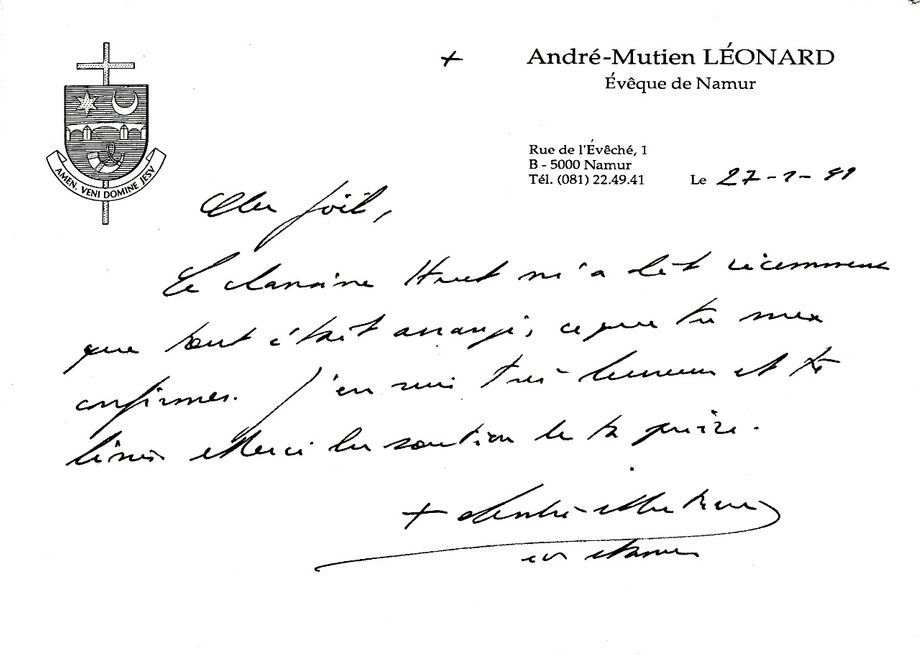 +
André-Mutien LÉONARD
Évêque de Namur
Rue de l'Évêché, 1
B - 5000 Namur
Tél. (081) 22.49.41
Le 27-1-91
AMEN, VENI DOMINE JESV
Cher Joël,
Le chanoine Huet m'a dit récemment
que tout était arrangé, ce que tu me
confirmes. J'en suis très heureux et te
bénis. Merci du soutien de ta prière.
+ André-Mutien
év. Namur